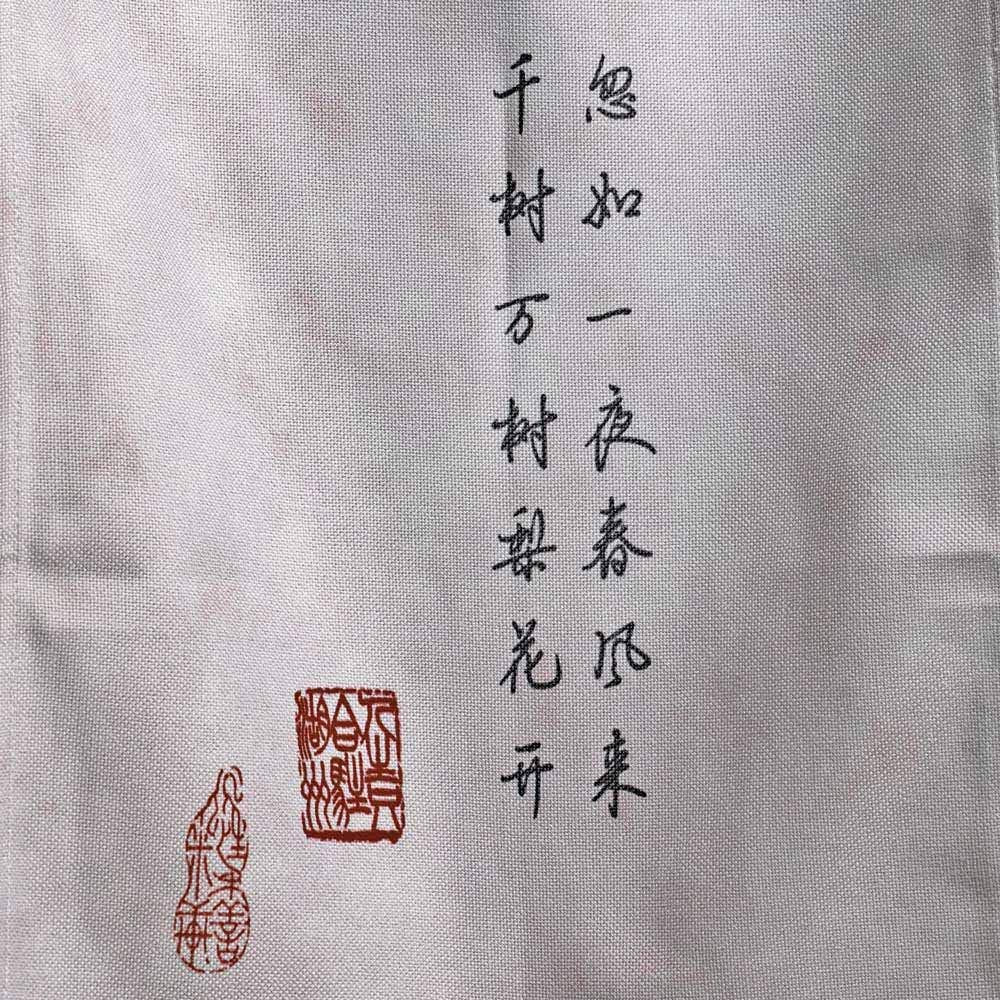 忽如一夜春风来
千树万树梨花开